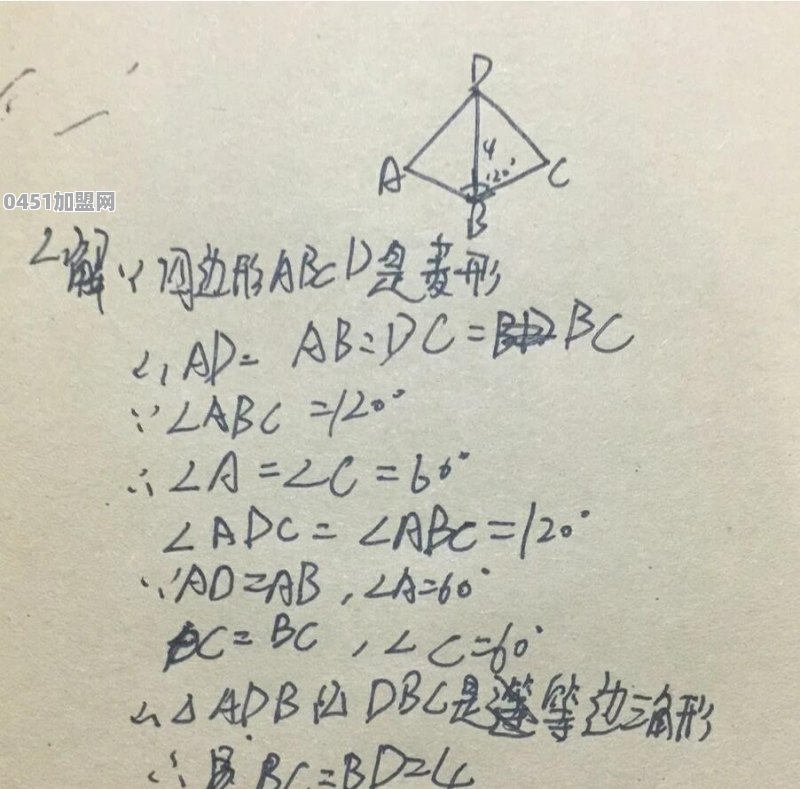 D
4
120°
A
C
B
0451加盟网
2、解 ∵ 四边形ABCD是菱形
∴ AD= AB=DC= BC
∵ ∠ABC =120°
∴ ∠A =∠C =60°
∠ADC = ∠ABC =120°
∵ AD=AB, ∠A=60°
DC= BC , ∠C=60°
∴ △ADB △DBC是等边三角形
∴ BC=BD=4